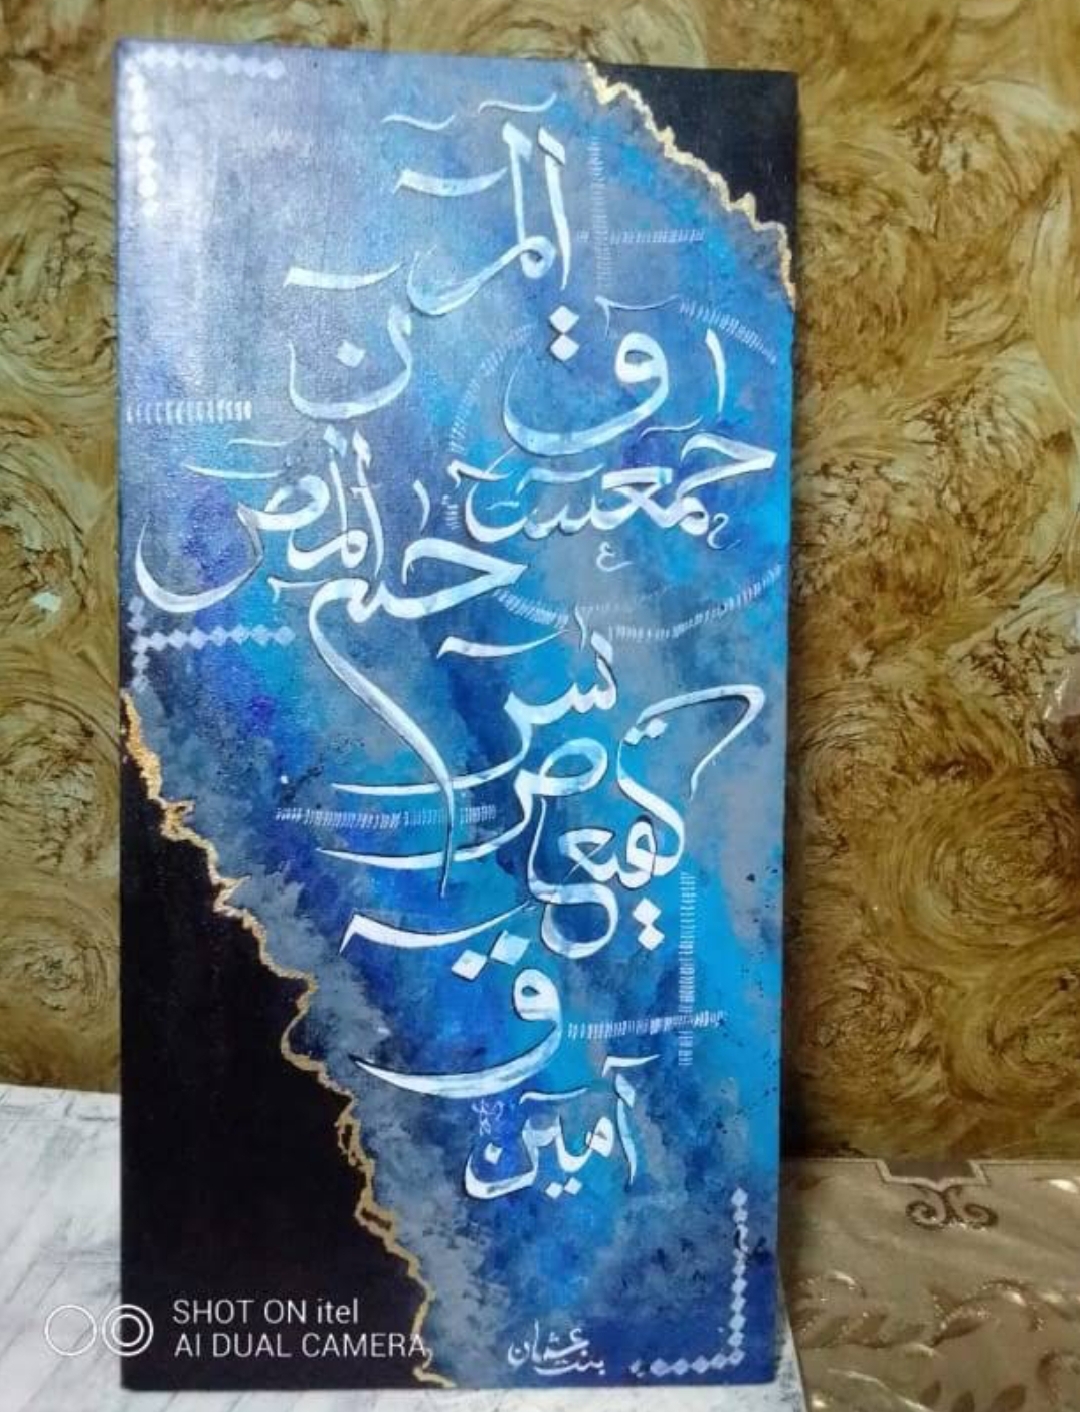 المر
ن
ق
حمعسق
المص
حم
يس
ص
كهيعص
ق
آمين
بنت عثمان
SHOT ON itel
AI DUAL CAMERA